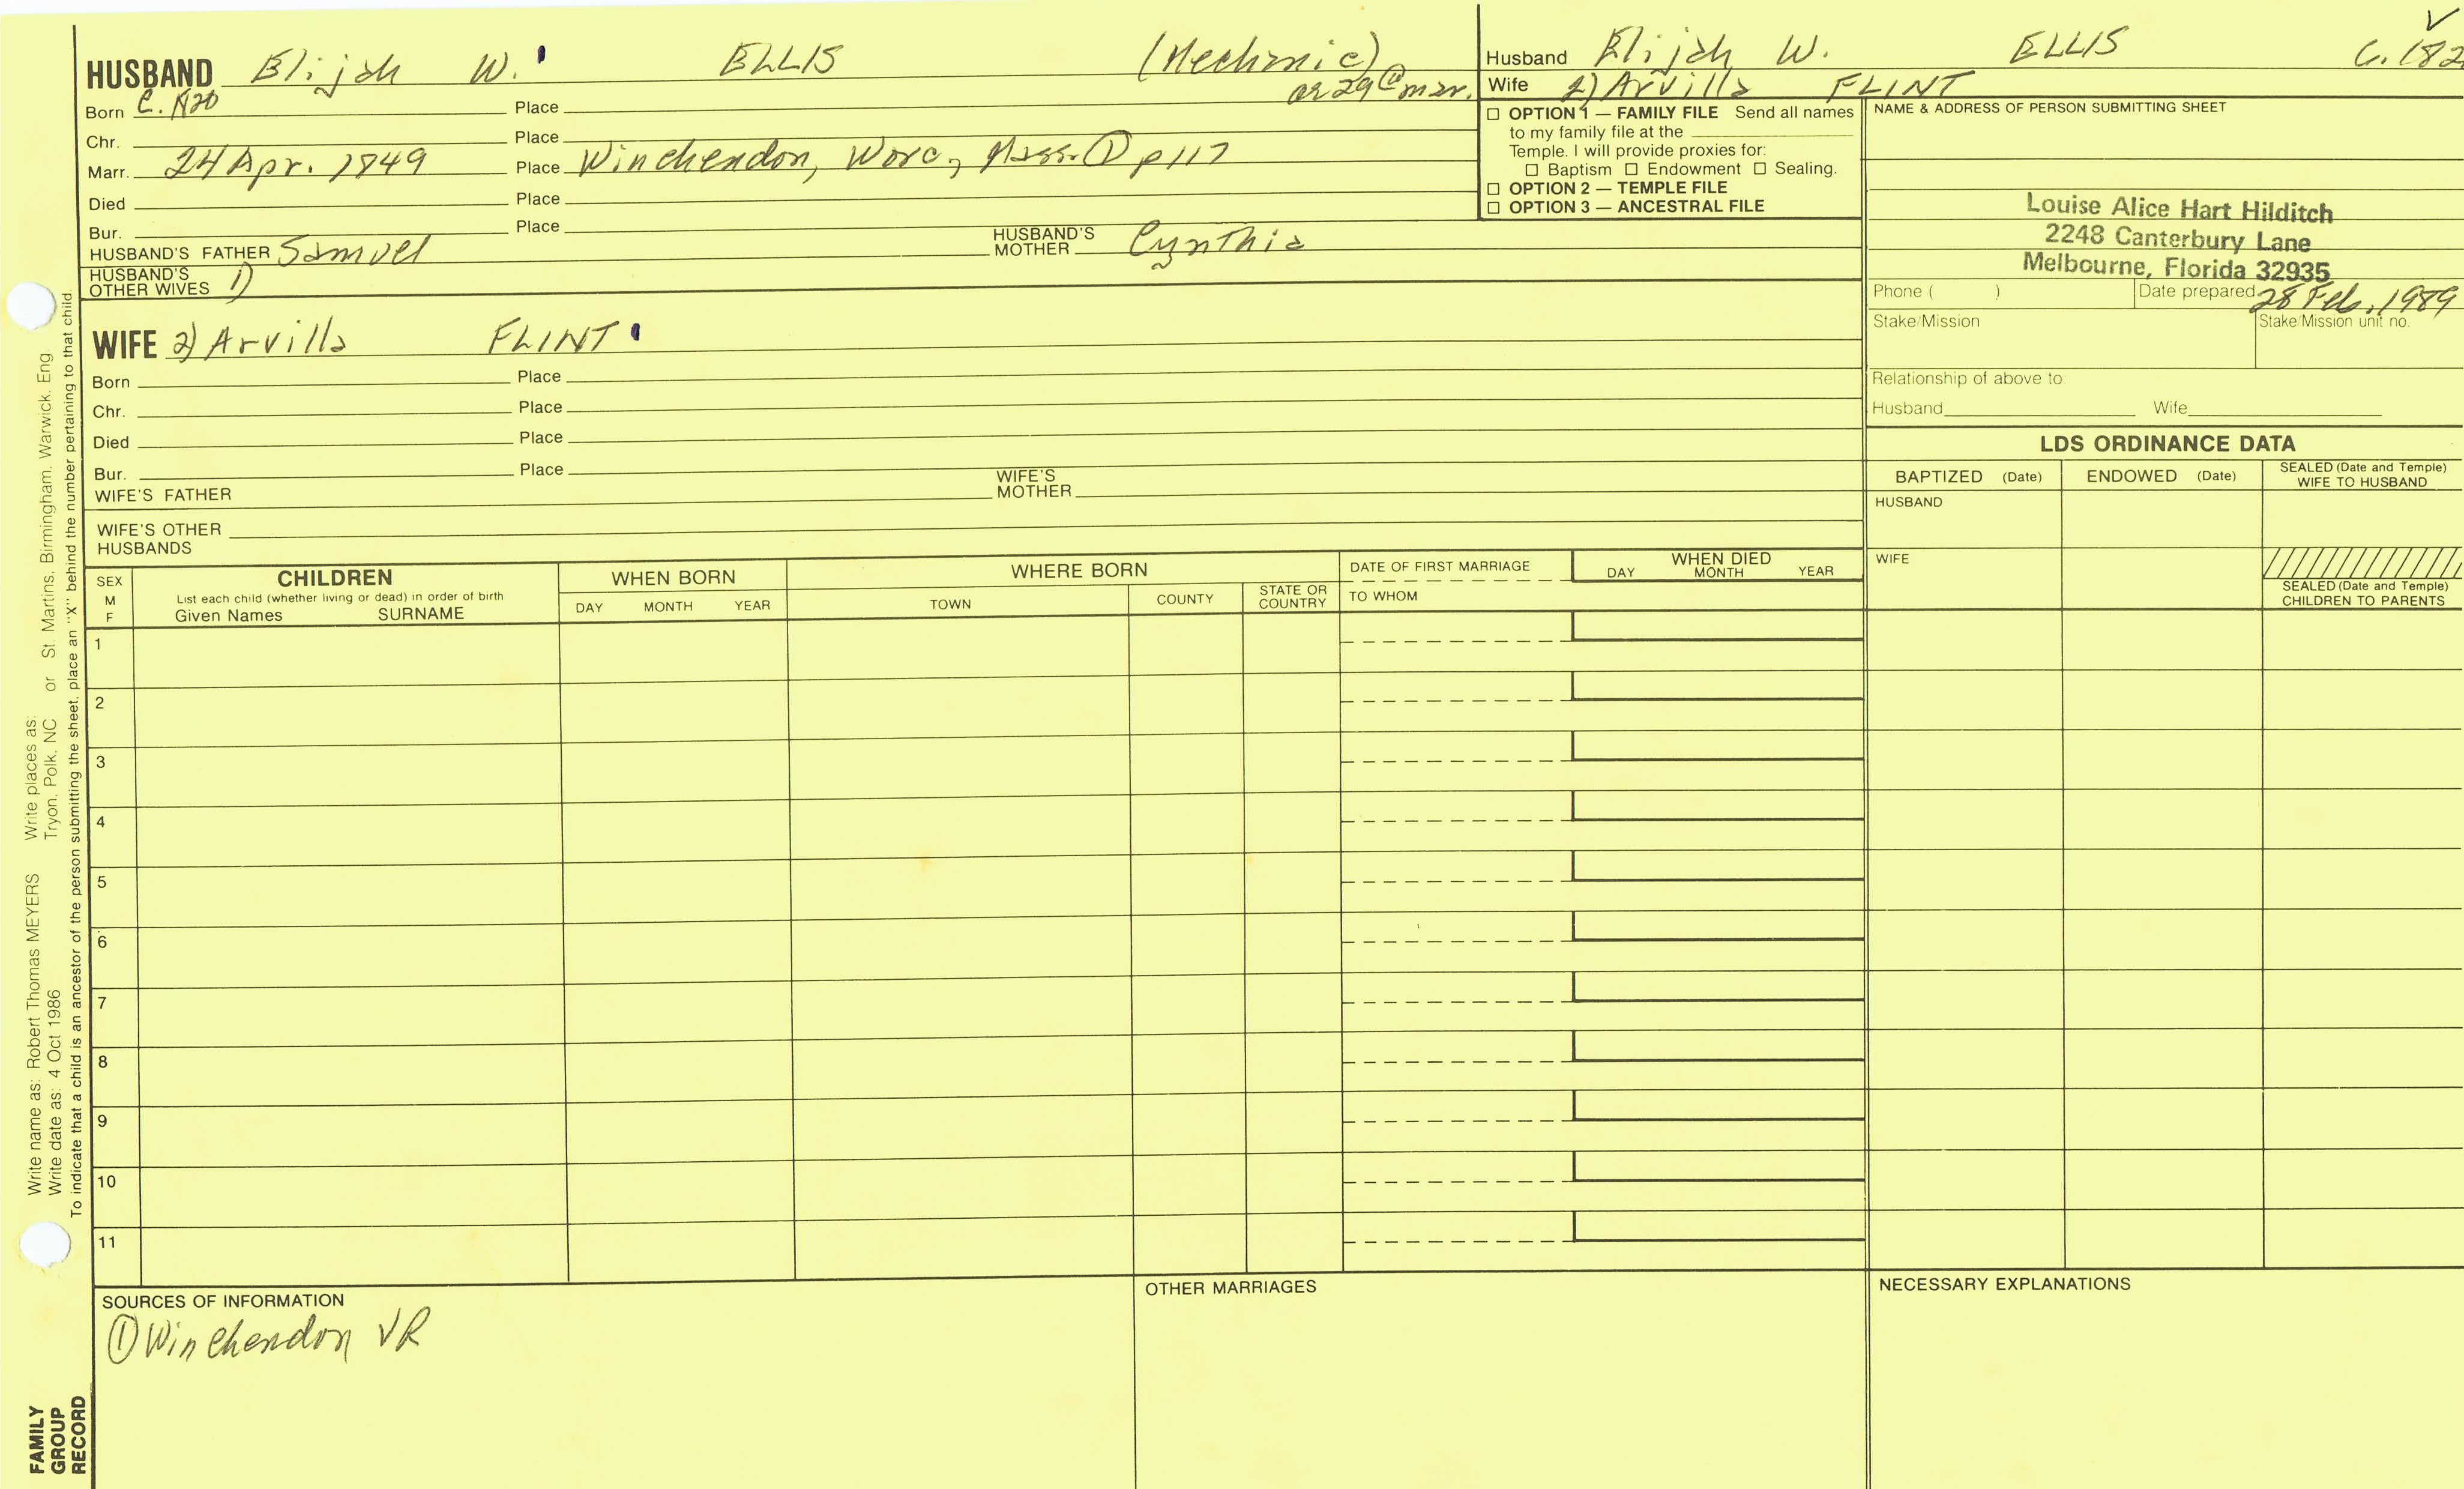 HUSBAND Elijah W. ELLIS (Mechanic)
ae 29 @ mar.
Born C. 1820 Place
Chr. Place
Marr. 24 Apr. 1849 Place Winchendon, Worc, Mass. ① p117
Died Place
Bur. Place
HUSBAND'S FATHER Samuel HUSBAND'S MOTHER Cynthia
HUSBAND'S OTHER WIVES 1)
WIFE 2) Arvilla FLINT
Born Place
Chr. Place
Died Place
Bur. Place
WIFE'S FATHER WIFE'S MOTHER
WIFE'S OTHER HUSBANDS
Husband Elijah W. ELLIS C. 182
Wife 2) Arvilla FLINT
☐ OPTION 1 — FAMILY FILE Send all names
to my family file at the
Temple. I will provide proxies for:
☐ Baptism ☐ Endowment ☐ Sealing.
☐ OPTION 2 — TEMPLE FILE
☐ OPTION 3 — ANCESTRAL FILE
NAME & ADDRESS OF PERSON SUBMITTING SHEET
Louise Alice Hart Hilditch
2248 Canterbury Lane
Melbourne, Florida 32935
Phone ( ) Date prepared 28 Feb. 1989
Stake/Mission Stake/Mission unit no.
Relationship of above to:
Husband Wife
LDS ORDINANCE DATA
BAPTIZED (Date) ENDOWED (Date) SEALED (Date and Temple) WIFE TO HUSBAND
HUSBAND
WIFE
SEALED (Date and Temple)
CHILDREN TO PARENTS
SEX M F
CHILDREN
List each child (whether living or dead) in order of birth
Given Names SURNAME
WHEN BORN
DAY MONTH YEAR
WHERE BORN
TOWN COUNTY STATE OR COUNTRY
DATE OF FIRST MARRIAGE
TO WHOM
WHEN DIED
DAY MONTH YEAR
1
2
3
4
5
6
7
8
9
10
11
SOURCES OF INFORMATION
① Winchendon VR
OTHER MARRIAGES
NECESSARY EXPLANATIONS
Write name as: Robert Thomas MEYERS Write places as:
Write date as: 4 Oct 1986 Tryon, Polk, NC or St. Martins, Birmingham, Warwick, Eng.
To indicate that a child is an ancestor of the person submitting the sheet, place an "X" behind the number pertaining to that child.
FAMILY
GROUP
RECORD